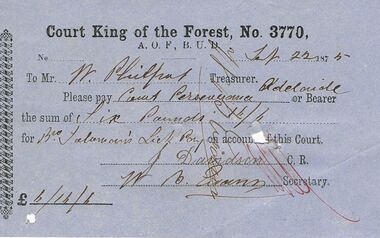 Court King of the Forest, No. 3770,
A. O. F., B. U. D.
No Sept. 22 1875
To Mr. W. Philpot Treasurer. Adelaide
Please pay Court or Bearer
the sum of Six Pounds 14/6
for Bro Salomon's Sick Pay on account of this Court.
J Davidson C. R.
W. B. Secretary.
£ 6/14/6